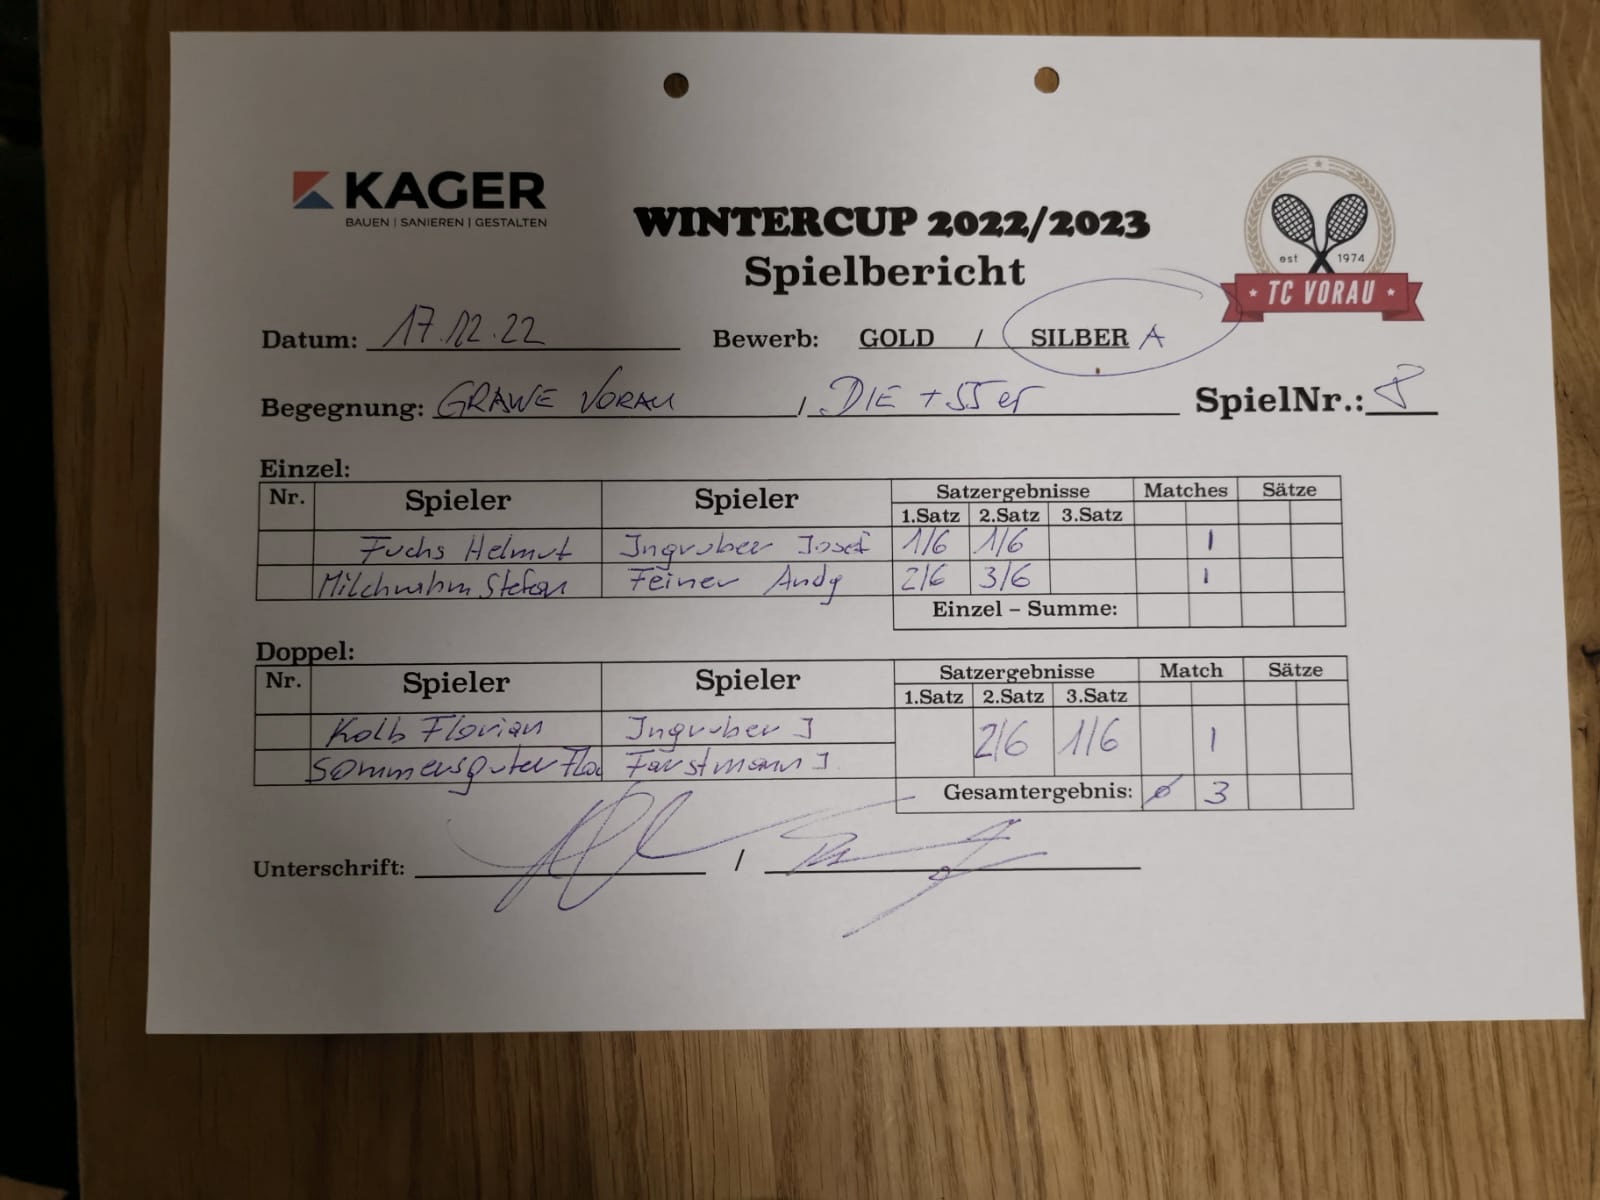 KAGER
BAUEN | SANIEREN | GESTALTEN
WINTERCUP 2022/2023
Spielbericht
est 1974
TC VORAU
Datum: 17.12.22 Bewerb: GOLD / SILBER A
Begegnung: GRAWE VORAU / DIE +55er SpielNr.: 8
Einzel:
Nr. Spieler Spieler Satzergebnisse Matches Sätze
1.Satz 2.Satz 3.Satz
Fuchs Helmut Ingruber Josef 1/6 1/6 1
Milchrahm Stefan Feiner Andy 2/6 3/6 1
Einzel – Summe:
Doppel:
Nr. Spieler Spieler Satzergebnisse Match Sätze
1.Satz 2.Satz 3.Satz
Kolb Florian Ingruber J 2/6 1/6 1
Sommersguter Flo Farstmann J
Gesamtergebnis: 0 3
Unterschrift: /